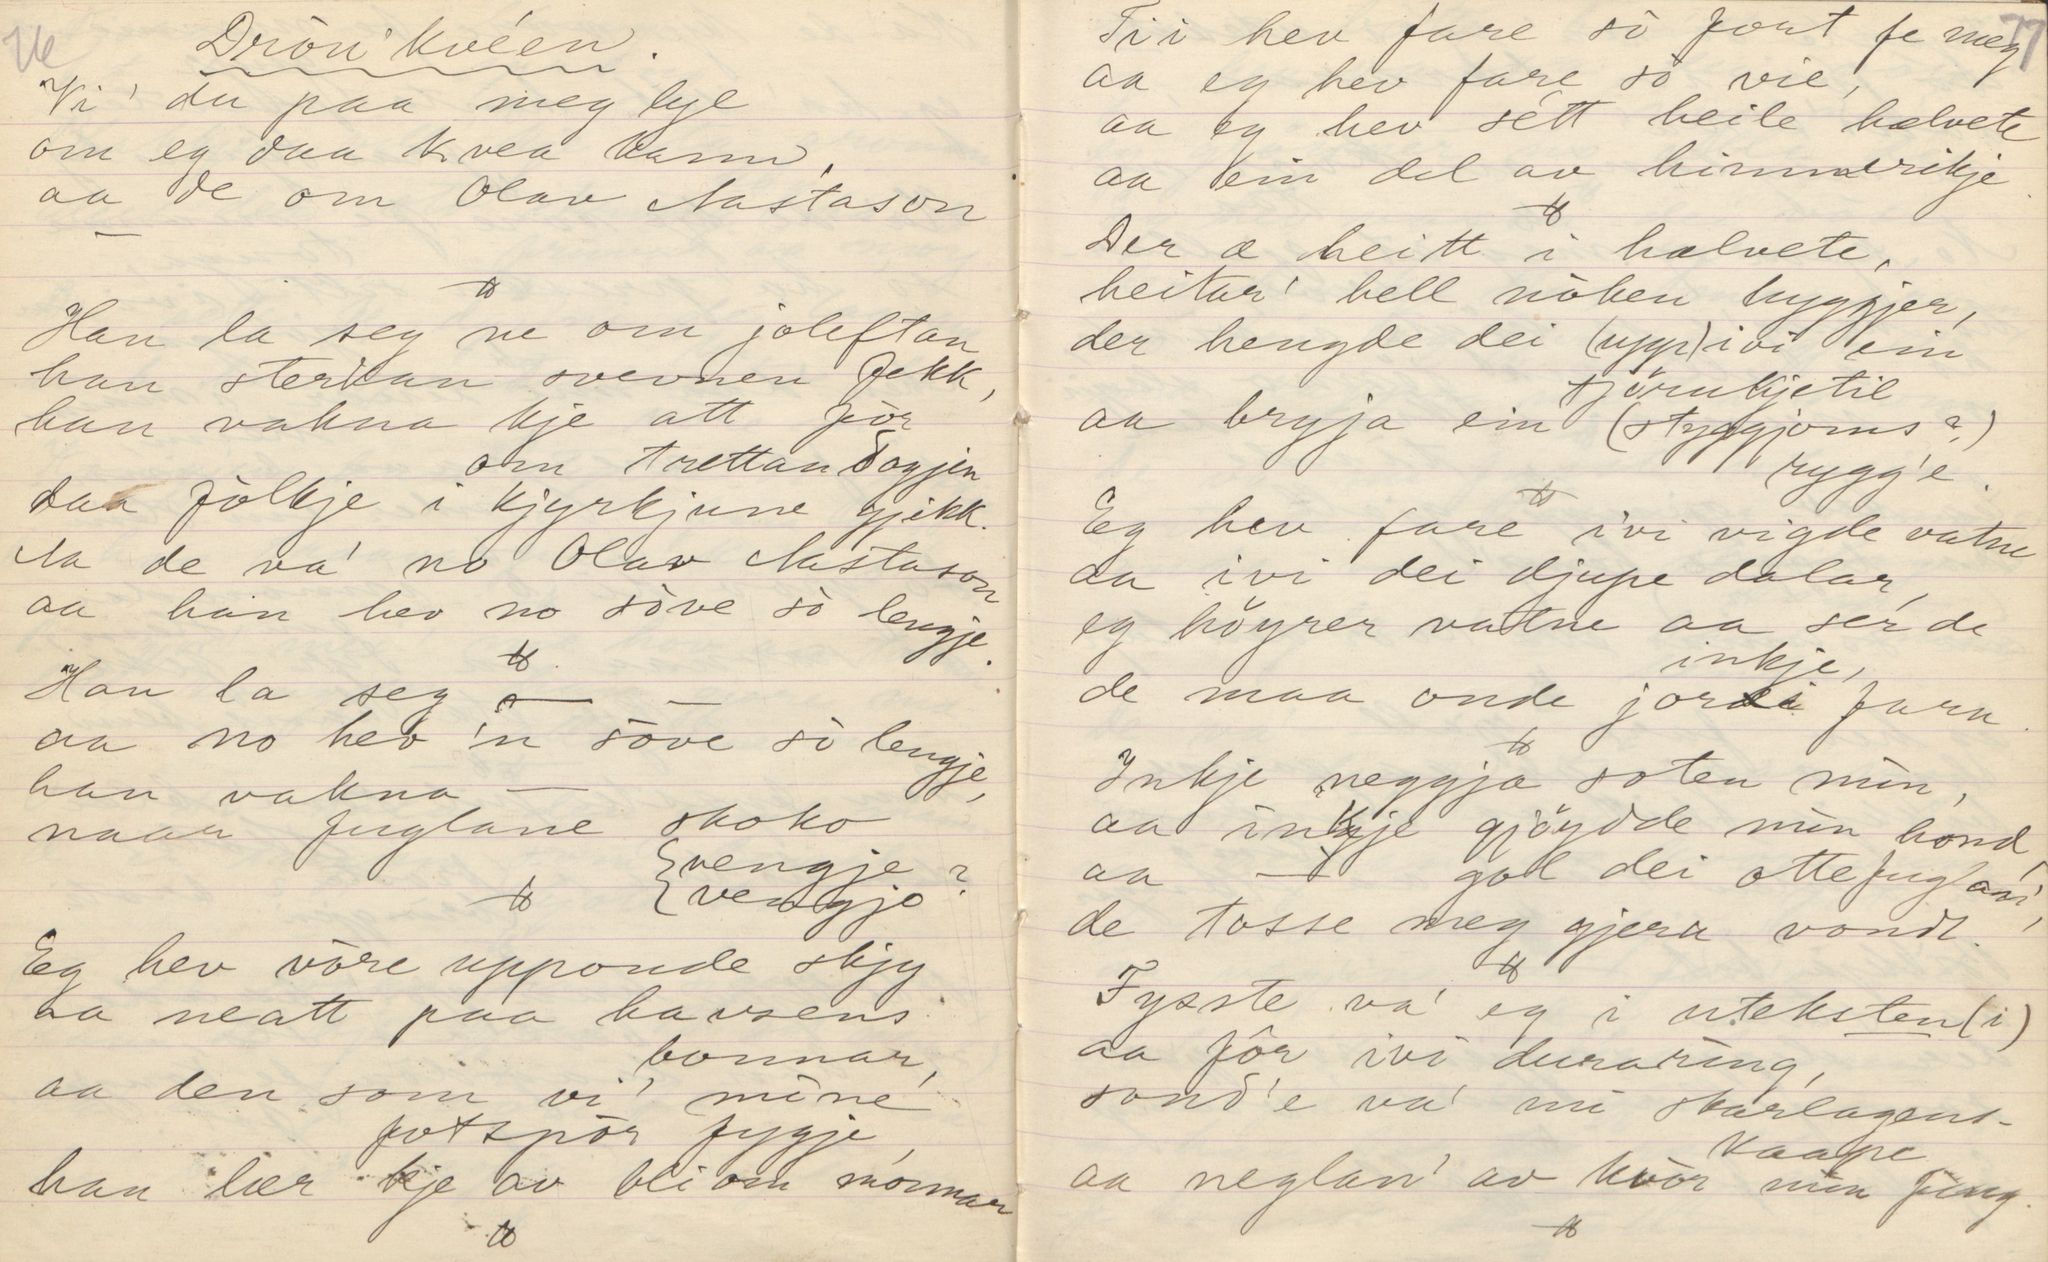 76
Draumkvéen.
Vi' du paa meg lye
om eg daa kvea kann,
aa de om Olav Nastason
—
Han la seg ne om joleftan
han sterkan svevnen fekk,
han vakna kje att fór
om trettandagjin
daa fòlkje i kjyrkjune gjikk.
Aa de va' no Olav Nastason
aa han hev no sòve sò lengje.
Han la seg — —
aa no hev 'n sòve sò lengje,
han vakna —
naar fuglane skoko
{vengje ?
{vengjo
Eg hev vòre upponde skjy
aa neatt paa havsens
bonnar,
aa den som vi' mine
fotspòr fygje
han lær kje av bli om monnar
77
Tii hev fare sò fort fe meg
aa eg hev fare sò vie,
aa eg hev sétt heile hælvete
aa ein del av himmerikje.
Der æ heitt i hælvete,
heitar' hell nòken hyggjer,
der hengde dei (upp) ivi ein
tjörukjetil
aa bryja ein (styggjoms?)
rygg'e.
Eg hev fare ivi vigde vatne
aa ivi dei djupe dalar,
eg höyrer vatne aa sér de
inkje,
de maa onde jordi fara.
Inkje neggja soten min,
aa inkje gjöydde min hond
aa — gol dei ottefuglani,
de tosse meg gjera vondt.
Fysste va' eg i uteksten (i)
aa fór ivi duraring,
sond'e va' mi skarlagens-
kaape
aa neglan' av kvòr min fing.